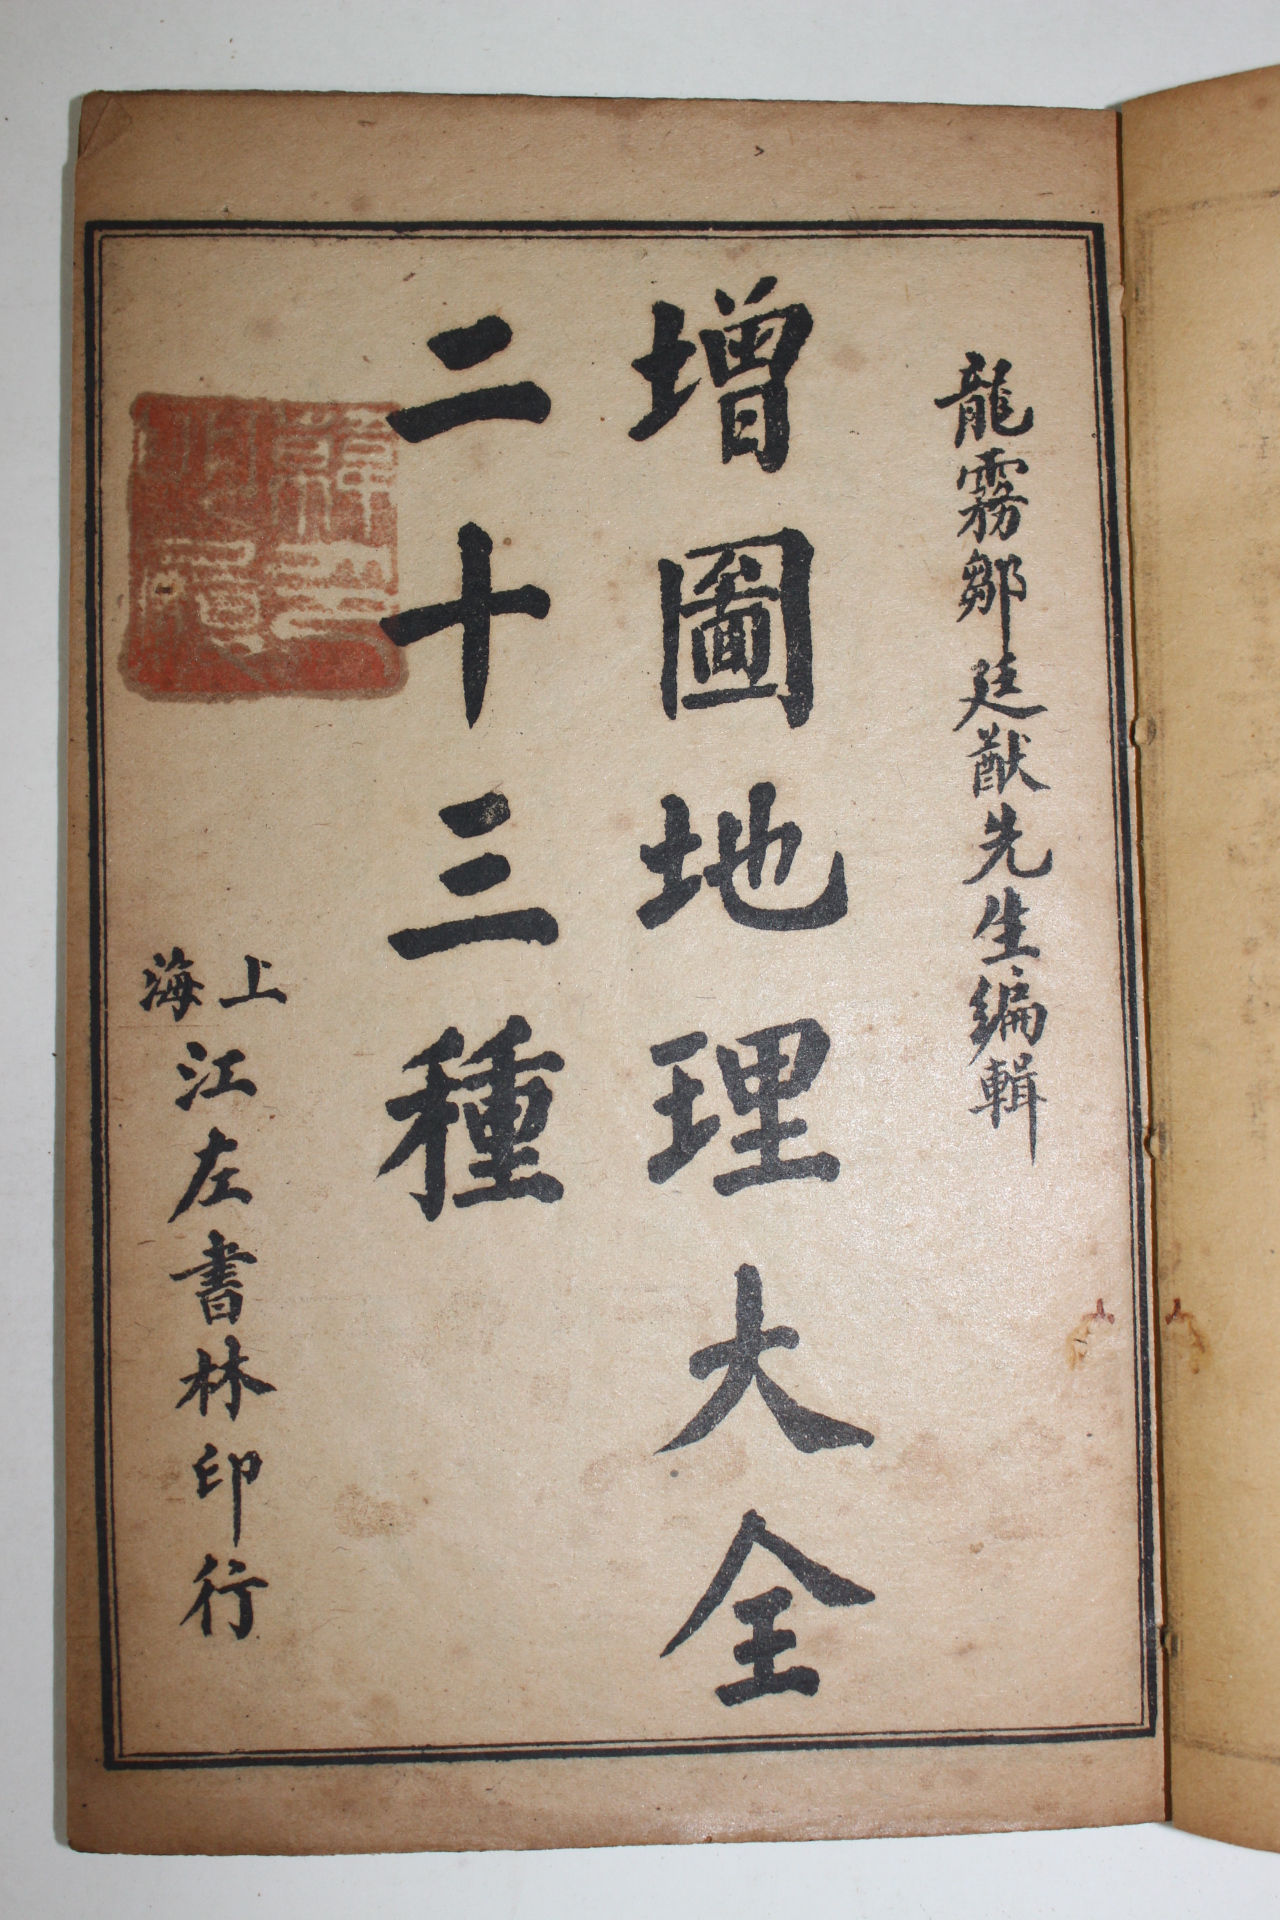 龍霧鄒廷猷先生編輯
增圖地理大全
二十三種
上海江左書林印行